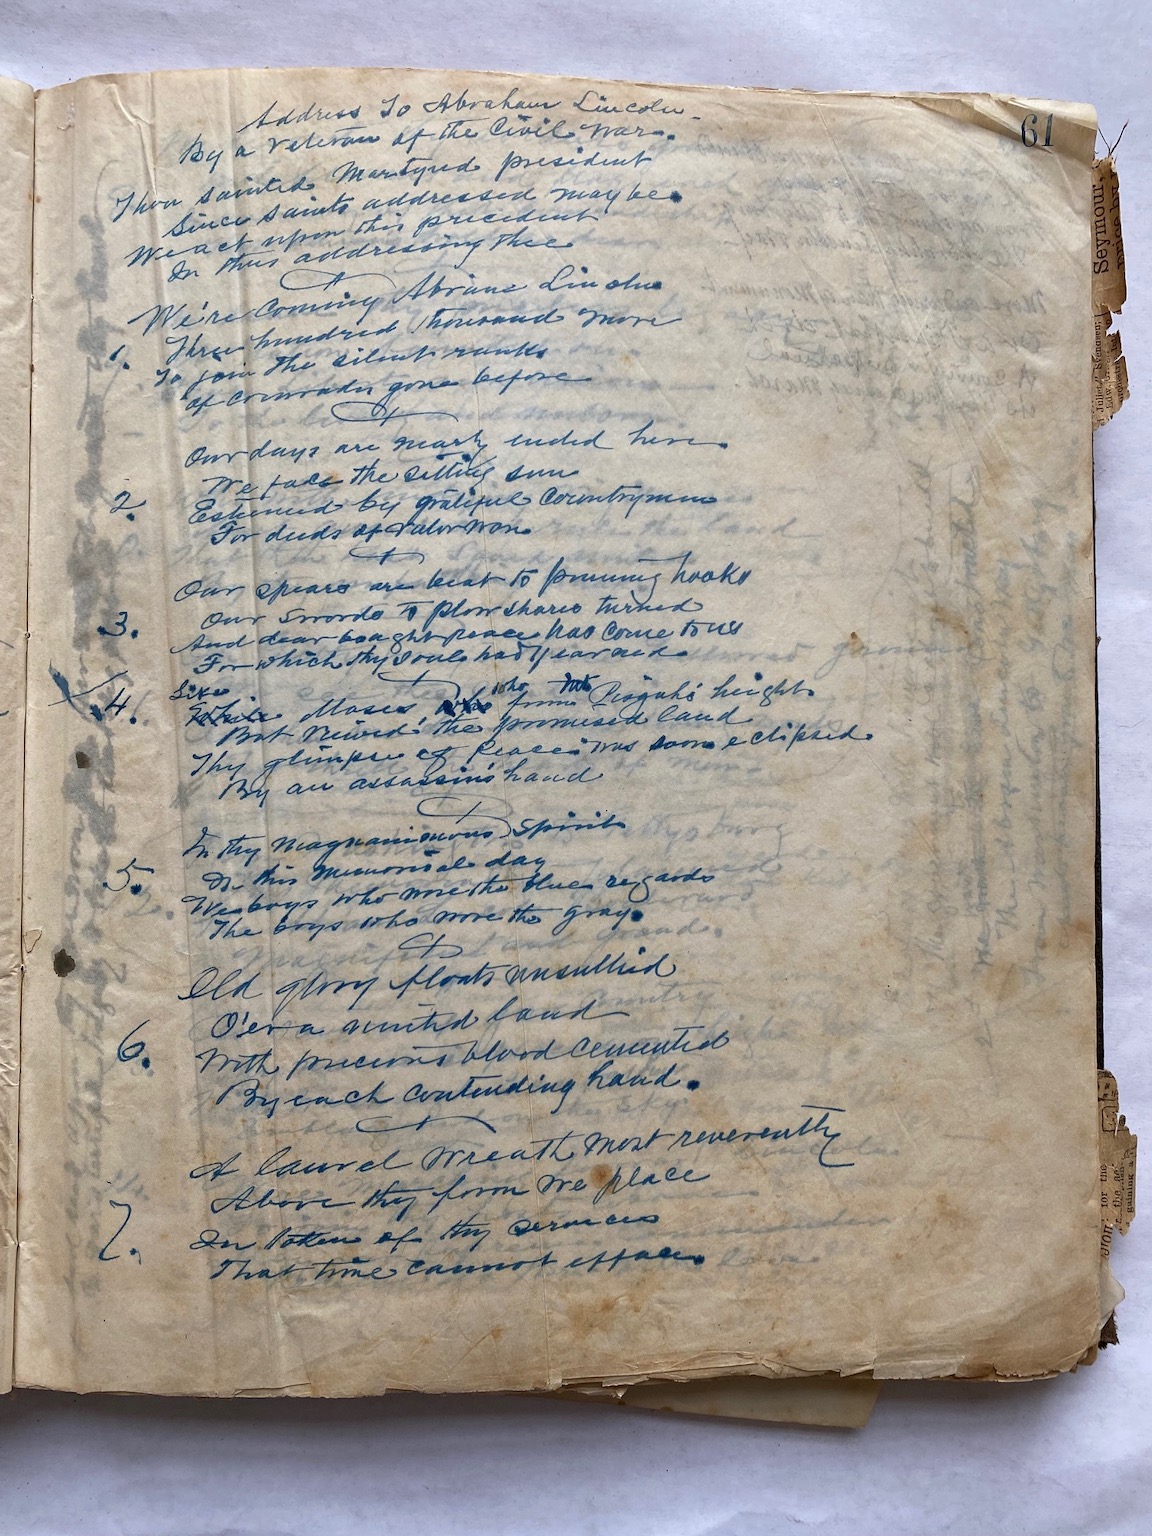 61
Address To Abraham Lincoln
By a Veteran of the Civil War.
Thou sainted Martyred president
Since saints addressed may be.
We act upon this precedent
In thus addressing thee
We're Coming Abram Lincoln
Three hundred thousand more
1. To join the silent ranks
of comrades gone before
Our days are nearly ended here.
We face the setting sun
2. Esteemed by grateful Countrymen
For deeds of valor won
Our spears are beat to pruning hooks
Our Swords to plow shares turned
3. And dear bought peace has come to us
For which thy soul had yearned
4. Like Moses who from Pisgah's height
But viewed the promised land
Thy glimpse of Peace was soon eclipsed
By an assassin's hand
In thy magnanimous spirit
On this Memorial day
5. We boys who wore the blue regards
The boys who wore the gray.
Old glory floats unsullied
O'er a united land
6. With precious blood cemented
By each contending hand.
A laurel Wreath most reverently
Above thy form we place
7. In token of thy services
That time cannot efface.
Seymour,